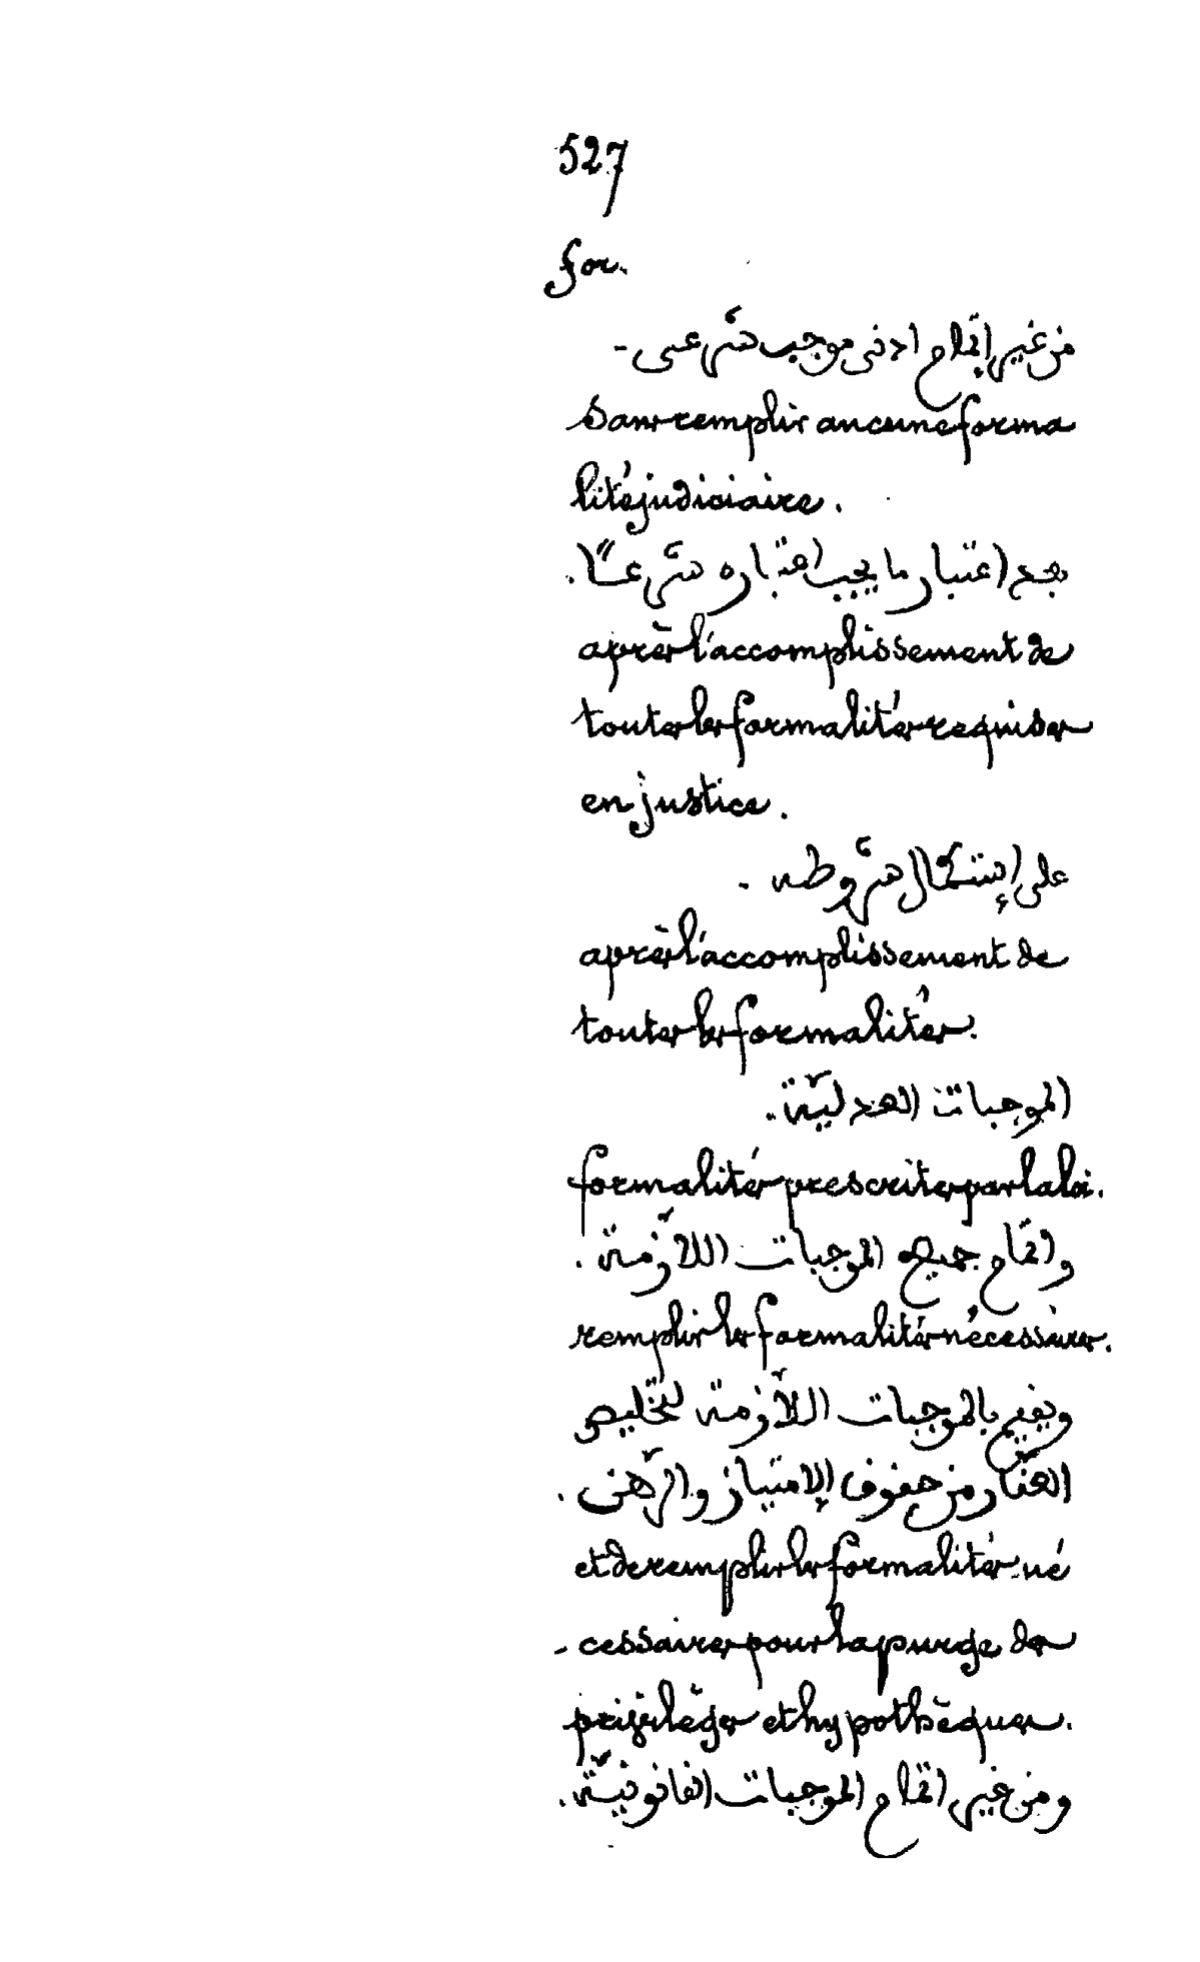 527
for.
من غير إتمام ادنى موجب شرعى -
Sans remplir aucune forma
lité judiciaire.
بعد اعتبار ما يجب اعتباره شرعًا.
après l'accomplissement de
toutes les formalités requises
en justice.
على إستكمال شروطه -
après l'accomplissement de
toutes les formalités.
الموجبات العدليّة.
formalités prescrites par la loi.
واتمام جميع الموجبات اللاّزمة.
remplir les formalités nécessaires.
ويقيم بالموجبات اللاّزمة لتخليص
العقار من حقوق الإمتياز والرّهن.
et de remplir les formalités né
- cessaires pour la purge des
privilèges et hypothèques.
ومن غير اتمام الموجبات القانونيّة.